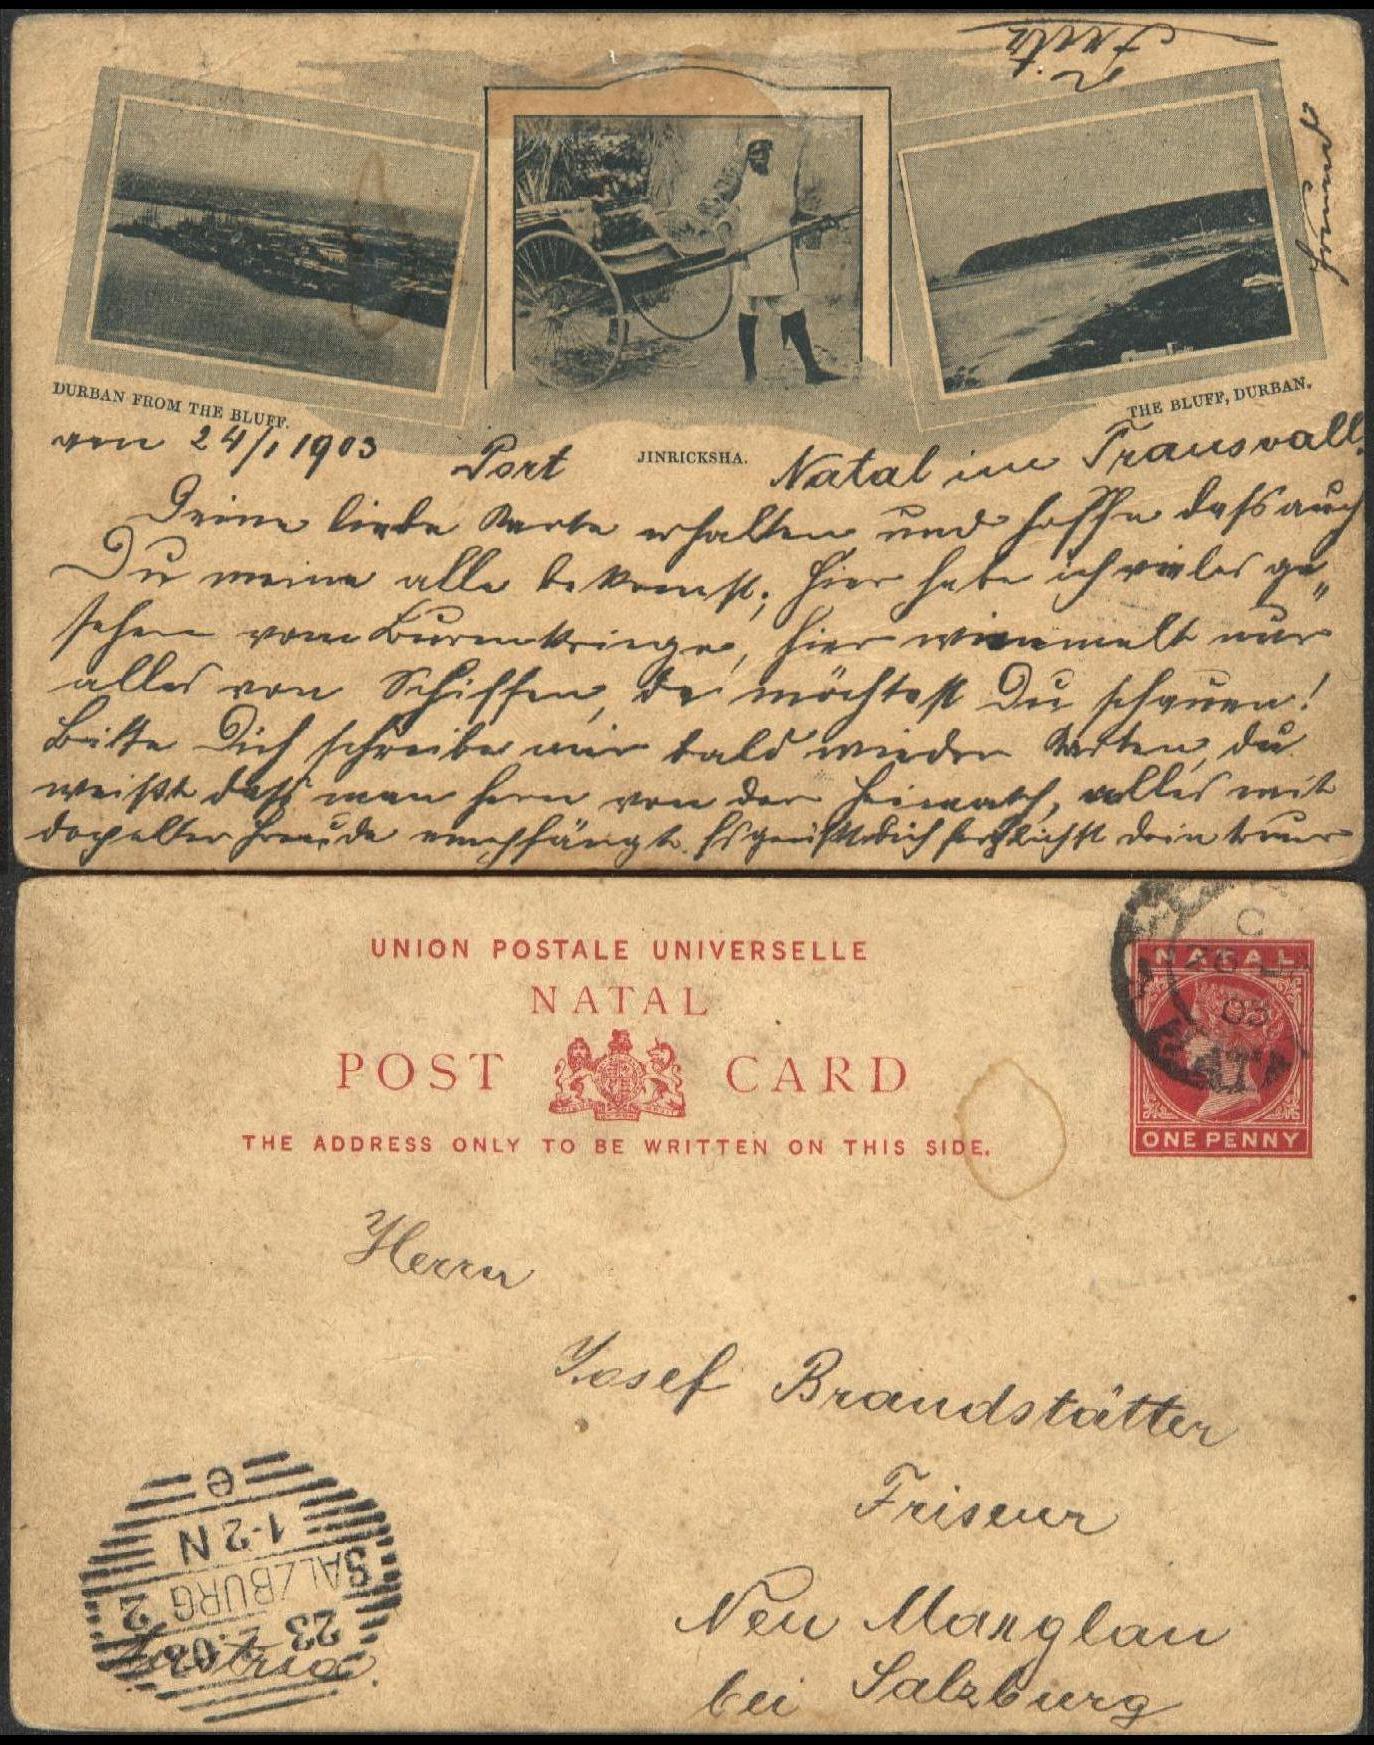 DURBAN FROM THE BLUFF.
JINRICKSHA.
THE BLUFF, DURBAN.
am 24/1 1903 Port Natal im Transvall.
Deine liebe Karte erhalten und hoffe dass auch
Du meine alle bekomst; hier habe ich vieles ge„
sehen vom Burenkriege, hier wimmelt nur
alles von Schiffen, da möchtest Du schauen!
Bitte Dich schreibe mir bald wieder Karten, du
weißt dass man fern von der Heimath, alles mit
dopelter Freude empfängt. Es grüßt dich herzlichst dein treuer
Freund
Fritz
UNION POSTALE UNIVERSELLE
NATAL
POST CARD
THE ADDRESS ONLY TO BE WRITTEN ON THIS SIDE.
NATAL
ONE PENNY
C
03
NATAL
Herrn
Josef Brandstätter
Friseur
Neu Marxglan
bei Salzburg
Austria
SALZBURG 2
23 2.03
1-2 N
e